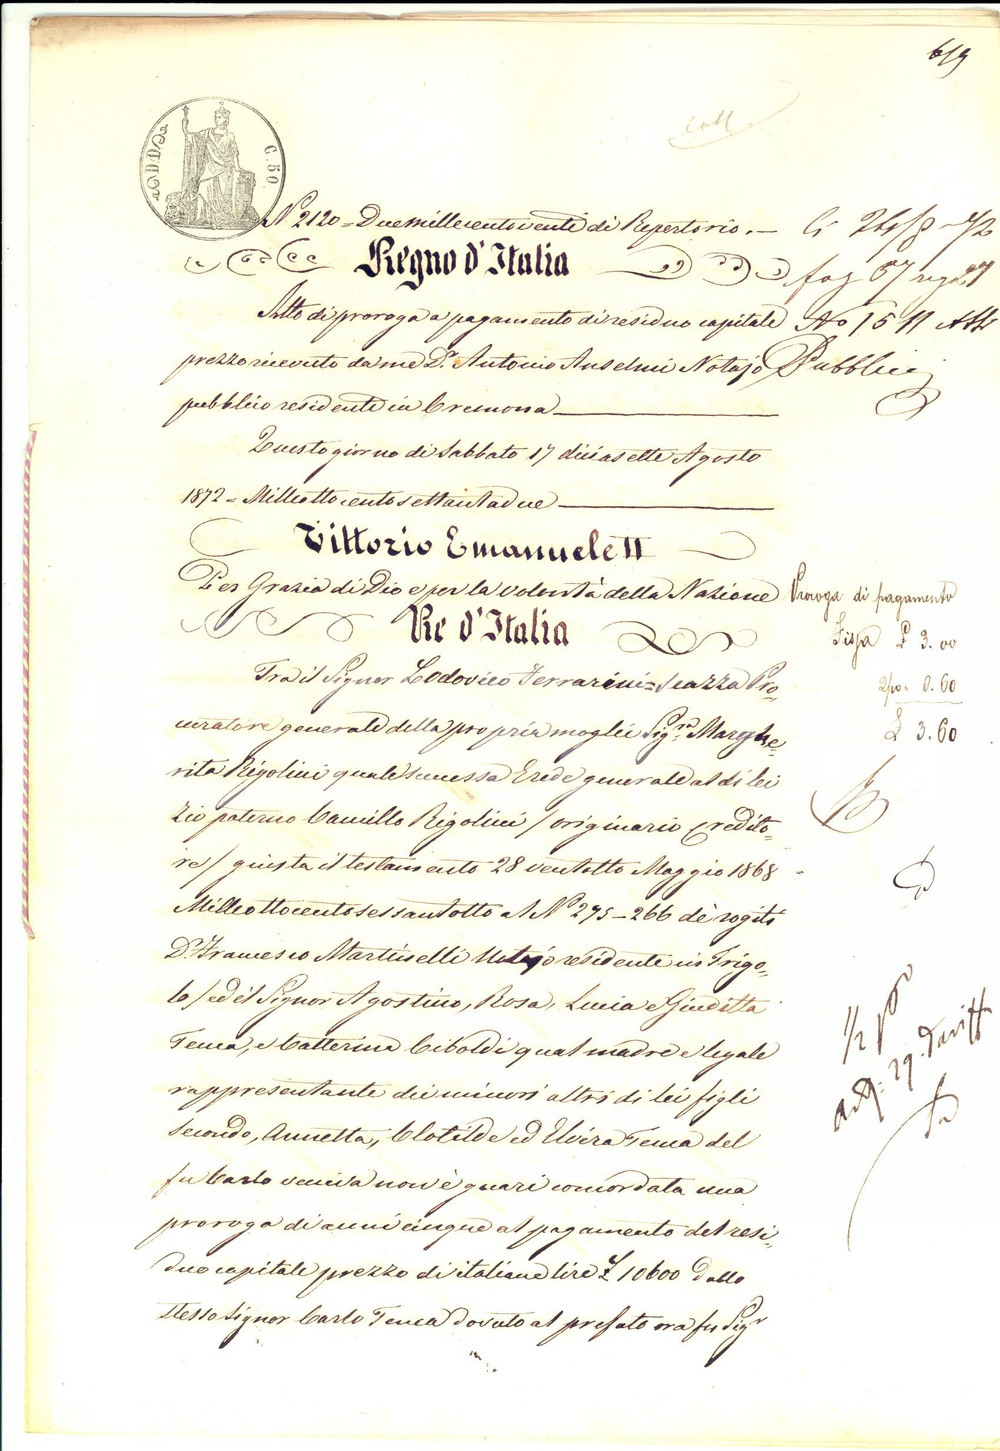 619
C. 50
N° 2120 = Duemillecentoventi di Repertorio. —
Regno d'Italia
Atto di proroga a pagamento di residuo capitale
prezzo ricevuto da me Dr. Antonio Anselmi Notajo
pubblico residente in Cremona
Questo giorno di Sabbato 17 diciasette Agosto
1872 = Milleottocentosettantadue
Vittorio Emanuele II
Per Grazia di Dio e per la volontà della Nazione
Re d'Italia
Tra il Signor Lodovico Ferrarini = Scazza Pro-
curatore generale della propria moglie Sigra. Marghe-
rita Rigolini quale successa Erede generale al di lei
zio paterno Camillo Rigolini / originario credito-
re / giusta il testamento 28 ventotto Maggio 1868
Milleottocentosessantotto al N° 295-266 de' rogiti
Dr. Francesco Martinelli Notajo residente in Trigo-
lo / ed il Signor Agostino, Rosa, Lucia e Giuditta
Tenca, e Catterina Ciboldi qual madre e legale
rappresentante dei minori altri di lei figli
Secondo, Annetta, Clotilde ed Elvira Tenca del
fu Carlo veniva non è guari concordata una
proroga di anni cinque al pagamento del resi-
duo capitale prezzo di italiane lire £ 10600 dallo
stesso Signor Carlo Tenca dovuto al prefato ora fu Sigr
fog 67
N° 1511 Atti
Pubblici
Proroga di pagamento
Fissa £ 3.00
0.60
£ 3.60
1/2
29 Tariffa